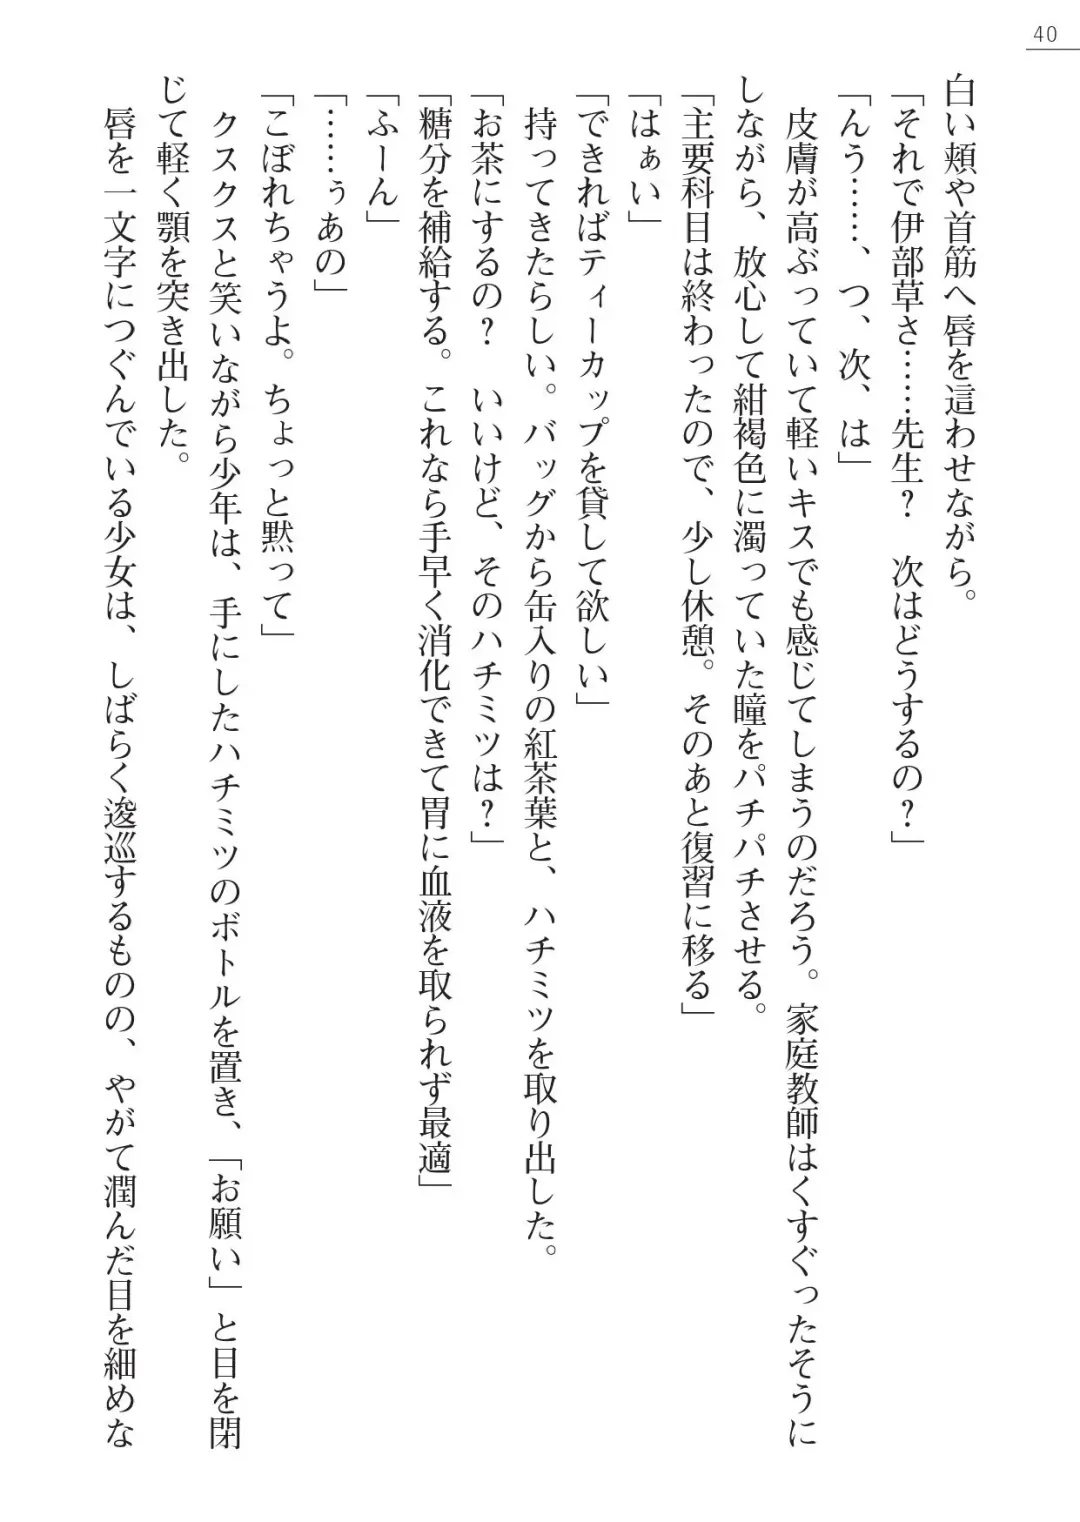 40
白い頬や首筋へ唇を這わせながら。
「それで伊部草さ……先生？　次はどうするの？」
「んう……、つ、次、は」
皮膚が高ぶっていて軽いキスでも感じてしまうのだろう。家庭教師はくすぐったそうに
しながら、放心して紺褐色に濁っていた瞳をパチパチさせる。
「主要科目は終わったので、少し休憩。そのあと復習に移る」
「はぁい」
「できればティーカップを貸して欲しい」
持ってきたらしい。バッグから缶入りの紅茶葉と、ハチミツを取り出した。
「お茶にするの？　いいけど、そのハチミツは？」
「糖分を補給する。これなら手早く消化できて胃に血液を取られず最適」
「ふーん」
「……ぅあの」
「こぼれちゃうよ。ちょっと黙って」
クスクスと笑いながら少年は、手にしたハチミツのボトルを置き、「お願い」と目を閉
じて軽く顎を突き出した。
唇を一文字につぐんでいる少女は、しばらく逡巡するものの、やがて潤んだ目を細めな